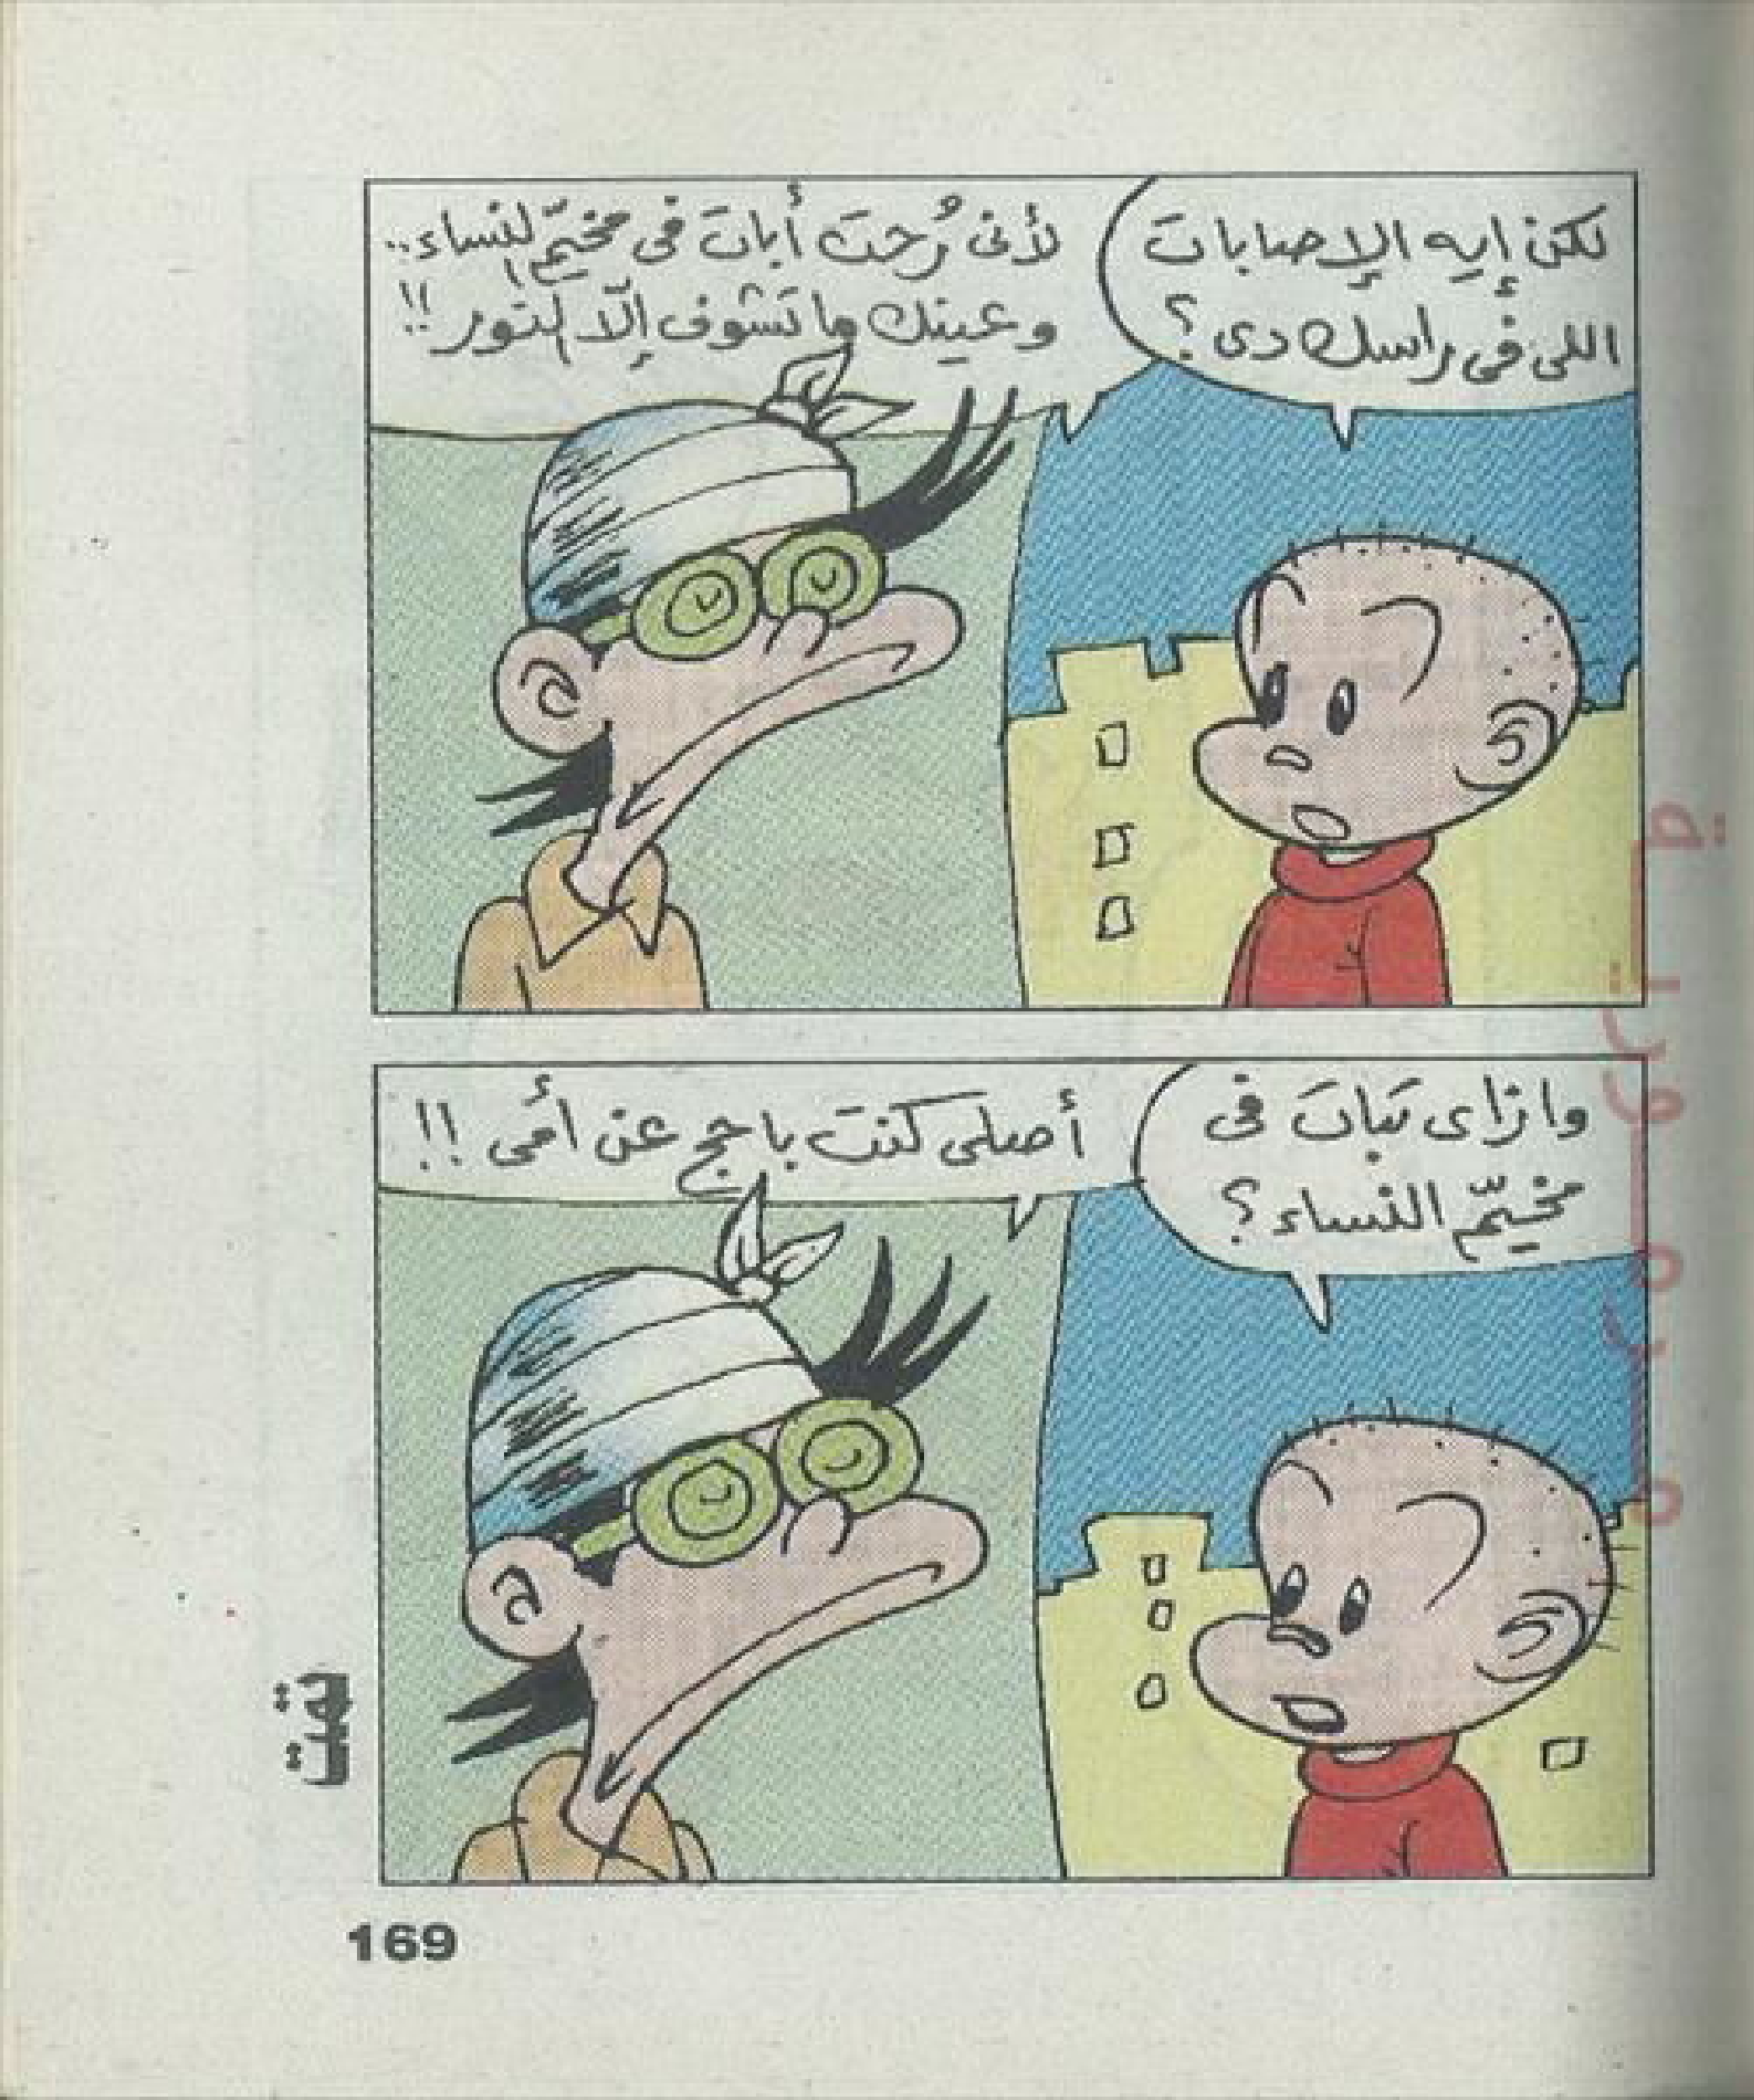 لكن إيه الإصابات
اللى فى راسك دى؟
لأنى رُحت أبات فى مخيّم النساء..
وعينك ما تشوف إلّا النور!!
وازاى تبات فى
مخيّم النساء؟
أصلى كنت باحج عن أمى!!
تمت
169